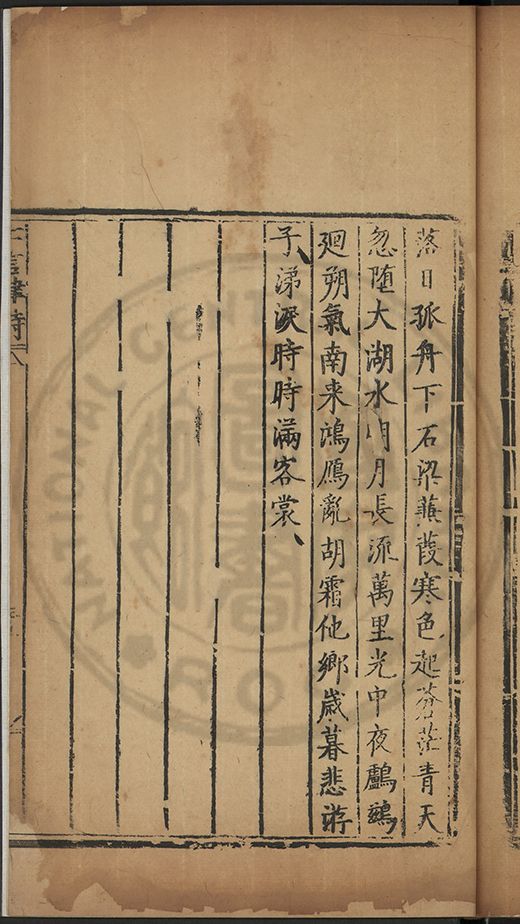 落日孤舟下石梁蒹葭寒色起蒼茫青天
忽墮大湖水明月長流萬里光中夜鸕鷀
廻朔氣南来鴻鴈亂胡霜他鄉歲暮悲游
子涕淚時時滿客裳
言律詩